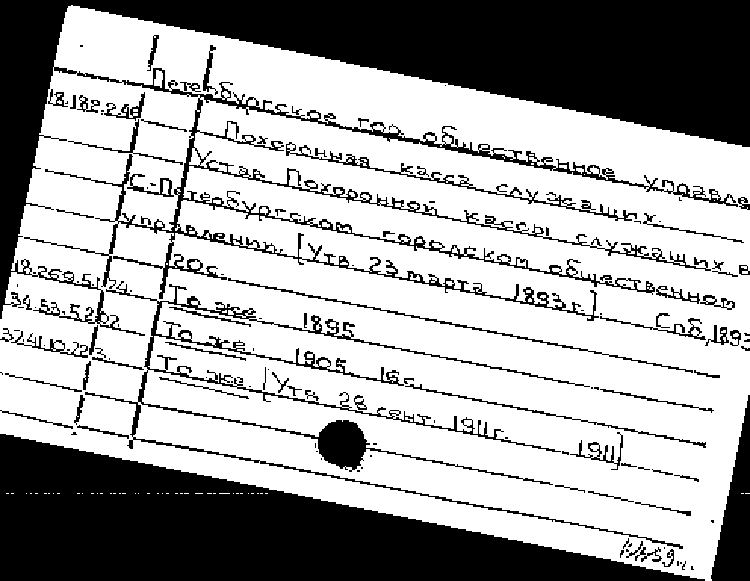 Петербургское гор. общественное управле
18.182.2.46
Похоронная касса служащих.
Устав Похоронной кассы служащих в
С.-Петербургском городском общественном
управлении. [Утв. 23 марта 1893 г.]. Спб, 1893
20 с.
18.269.5.124. То же. 1895
34.53.5.202 То же. 1905. 16 с.
37.41.10.223. То же [Утв. 28 сент. 1911 г. 1911]